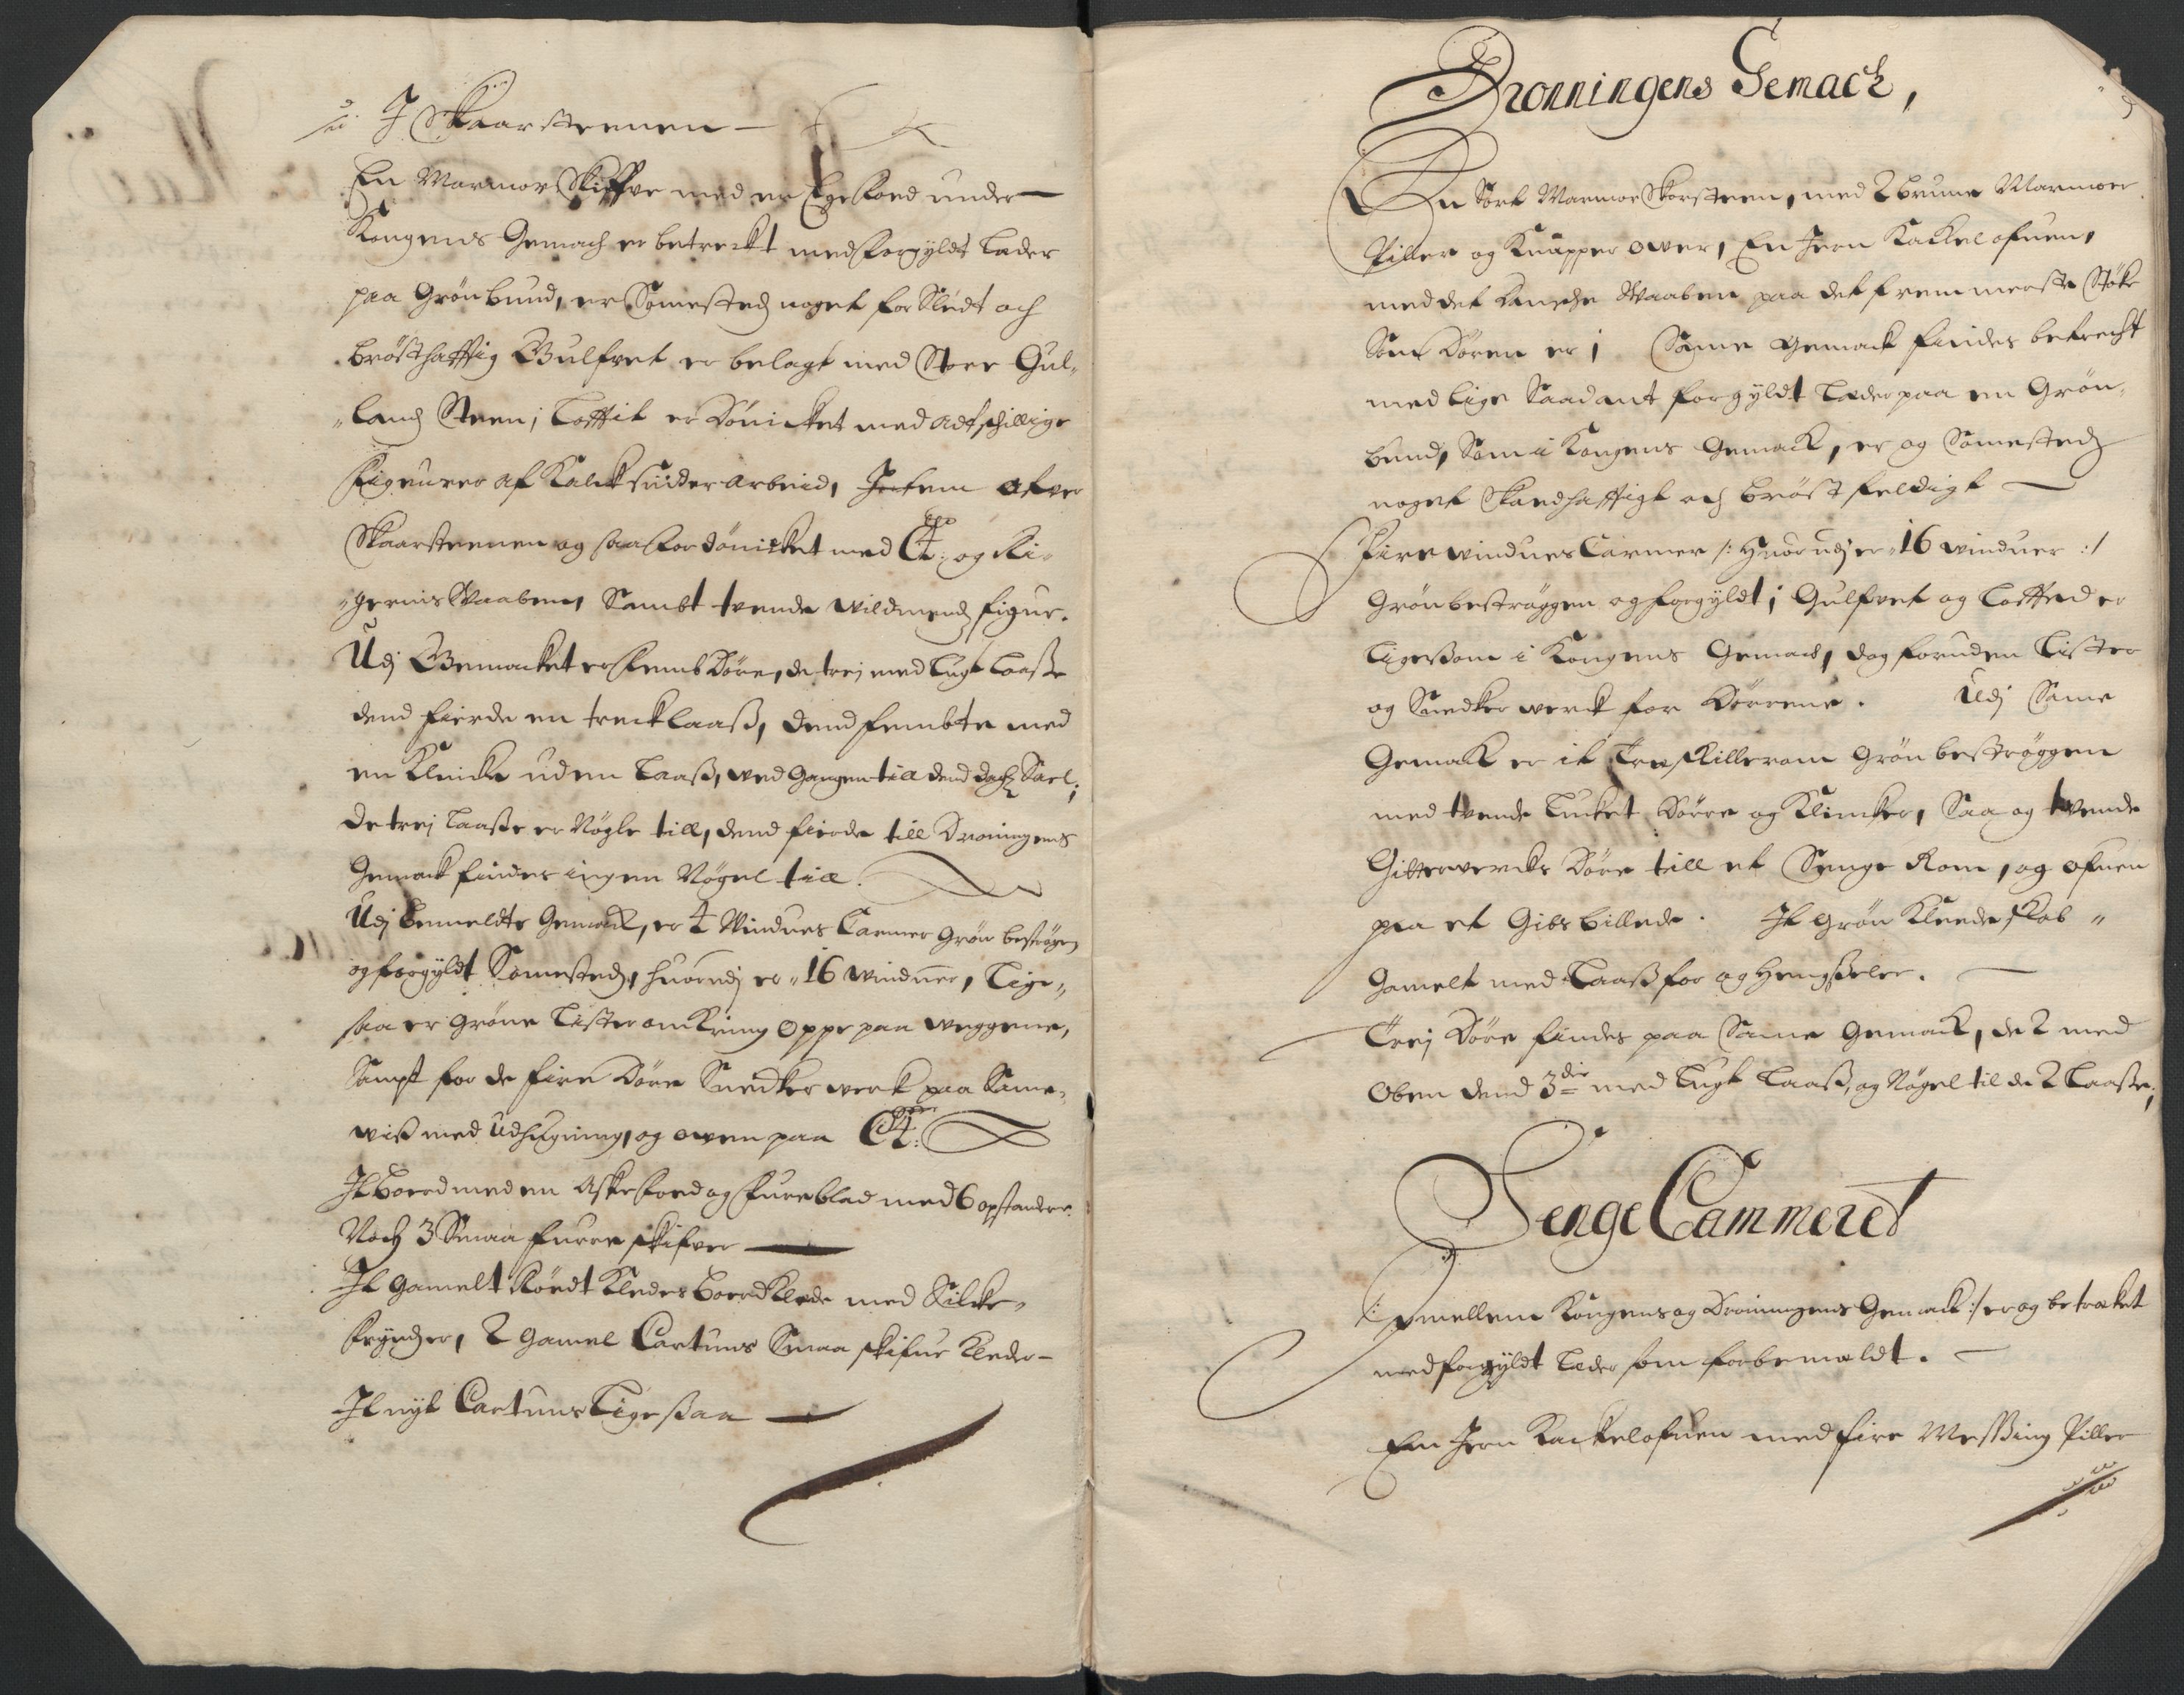 I Skaarsteenen
En Marmor Skiffve med en Ege Foed under
Kongens Gemach er betreckt med forgyldt Læder
paa Grøn bund, er Somesteds noget forslidt och
brøsthafftig Gulfvet er belagt med Stoer Gul„
„lands Steen; Lofftit er dönicket med adschillige
Figeurer af Kalck snider Arbeid, Jtem ofver
Skaarsteenen og saa for dönicket med C4: og Ri„
„gernis Waaben, Sambt tvende Wildmends figur.
Udj Gemacket er femb Döre, de trej med lugt laasse
dend fierde en trecklaass, dend fembte med
en Klincke uden Laass, ved gangen till dend Sael;
de trej laasse er Nögle till, dend fierde till Droningens
Gemack findes ingen Nögel till.
Udj bemeldte Gemack, er 4 Vindues Carmer Grön beströgen
og forgyldt Somesteds, huorudj er 16 vinduer, Lige„
saa er Gröne Lister omkring oppe paa veggene,
Sampt for de fire Döre Snedkerverk paa Same„
viss med udhugning, og oven paa C4:
Jt boerd med en Aske foed og Fureblad med 6 opstandere.
Noch 3 Smaa furre skifver
Jt Gamelt Rödt Kledes boerdklede med Silcke„
frynser, 2 gamel Cartuns Smaa skifve kleder
Jt nyt Cartuns Ligesaa
Dronningens Gemack,
En Sort Marmor Skorsteen, med 2 brune Marmoer
Piller og Knapper over, En Jern Kackelofuen,
med det Danske Waaben paa det fremmerste Støke
Som Dören er i Same Gemack findes betrecht
med lige Saadant forgyldt Læder paa en Grön„
bund, Som i Kongens Gemack, er og Somesteds
noget skaedhafftigt och brøstfeldigt
Fire vindues Carmer /: huorudj er 16 vinduer :/
Grön bestrøggen og forgyldt; Gulfvet og Loffted er
Ligesom i Kongens Gemack, dog foruden Lister
og Snedker verck for Dörrene. Udj Same
Gemack er it Træ skillerom Grön bestrøggen
med tvende Lucket Dörre og Klincker, Saa og tvende
Gitterverks Döre till et Senge Rom, og ofuen
paa et Gibs billede. Jt Grön Kleede skab
Gamelt med Laass for og Hengseler.
Trej Döre findes paa Same Gemack, de 2 med
oben dend 3die med Lugt Laass, og Nögel til de 2 Laasse;
Senge Cammeret
/: jmellem Kongens og Droningens Gemack :/ er og betrecket
med forgyldt Læder som forbemældt.
En Jern Kackelofuen med fire Messing Piller